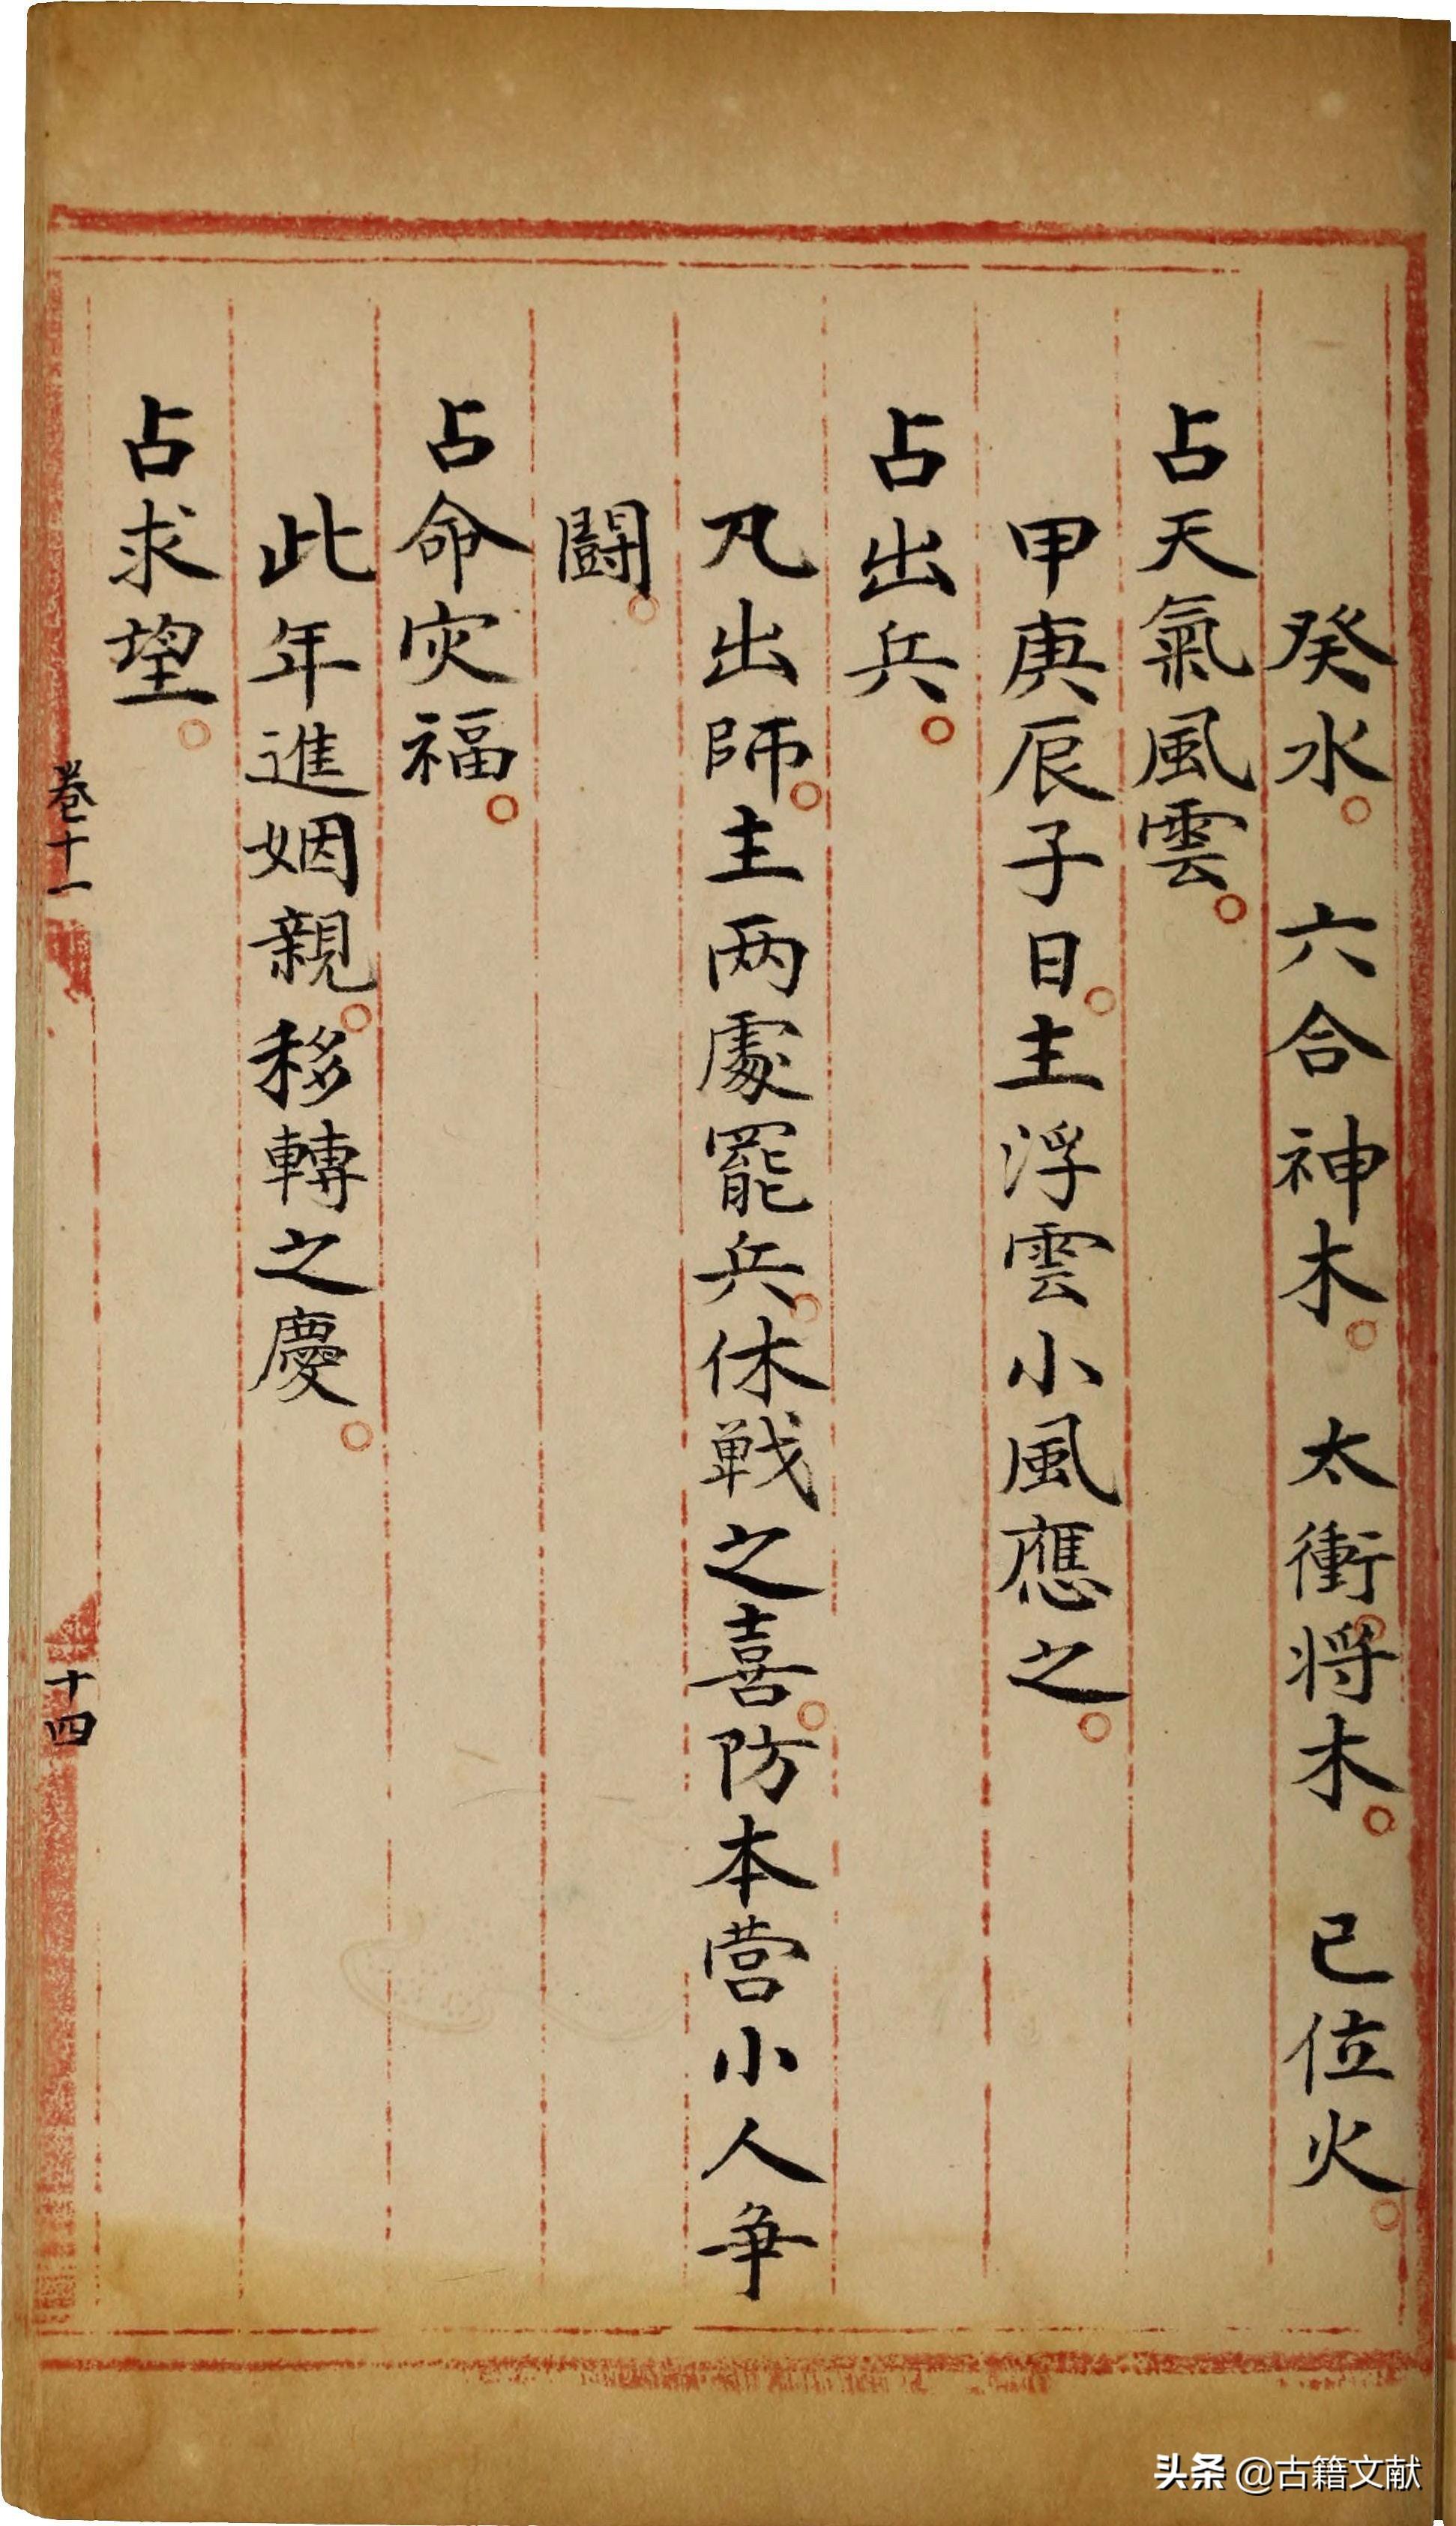 癸水。 六合神木。 太衝將木。 巳位火。
占天氣風雲。
甲庚辰子日。主浮雲小風應之。
占出兵。
凡出師。主两處罷兵。休戰之喜。防本营小人争
鬪。
占命灾福。
此年進姻親。移轉之慶。
占求望。
卷十一
十四
头条 @古籍文献